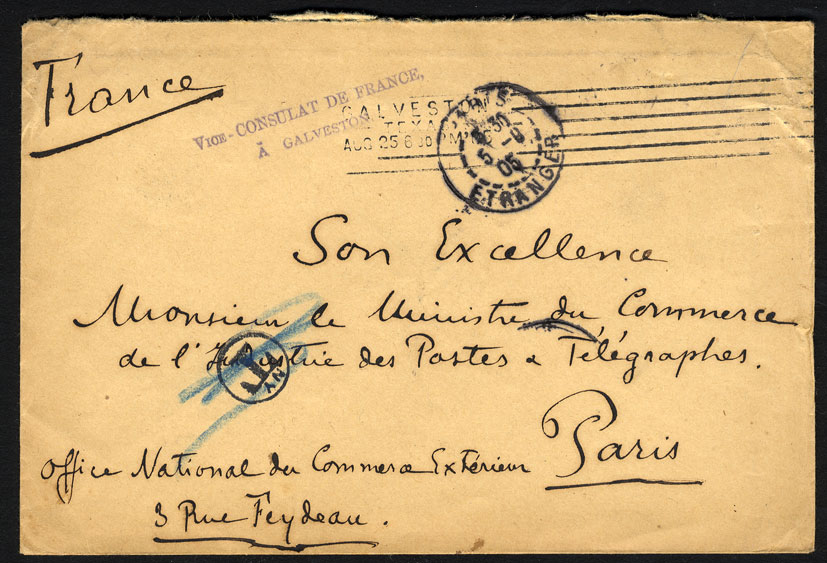 France
VICE-CONSULAT DE FRANCE,
À GALVESTON
GALVESTON
TEXA
AUG 25 6 30 PM
PARIS
30
5 -9
05
ETRANGER
Son Excellence
Monsieur le Ministre du Commerce
de l'Industrie des Postes & Télégraphes.
T
NY
Paris
Office National du Commerce Extérieur
3 Rue Feydeau.